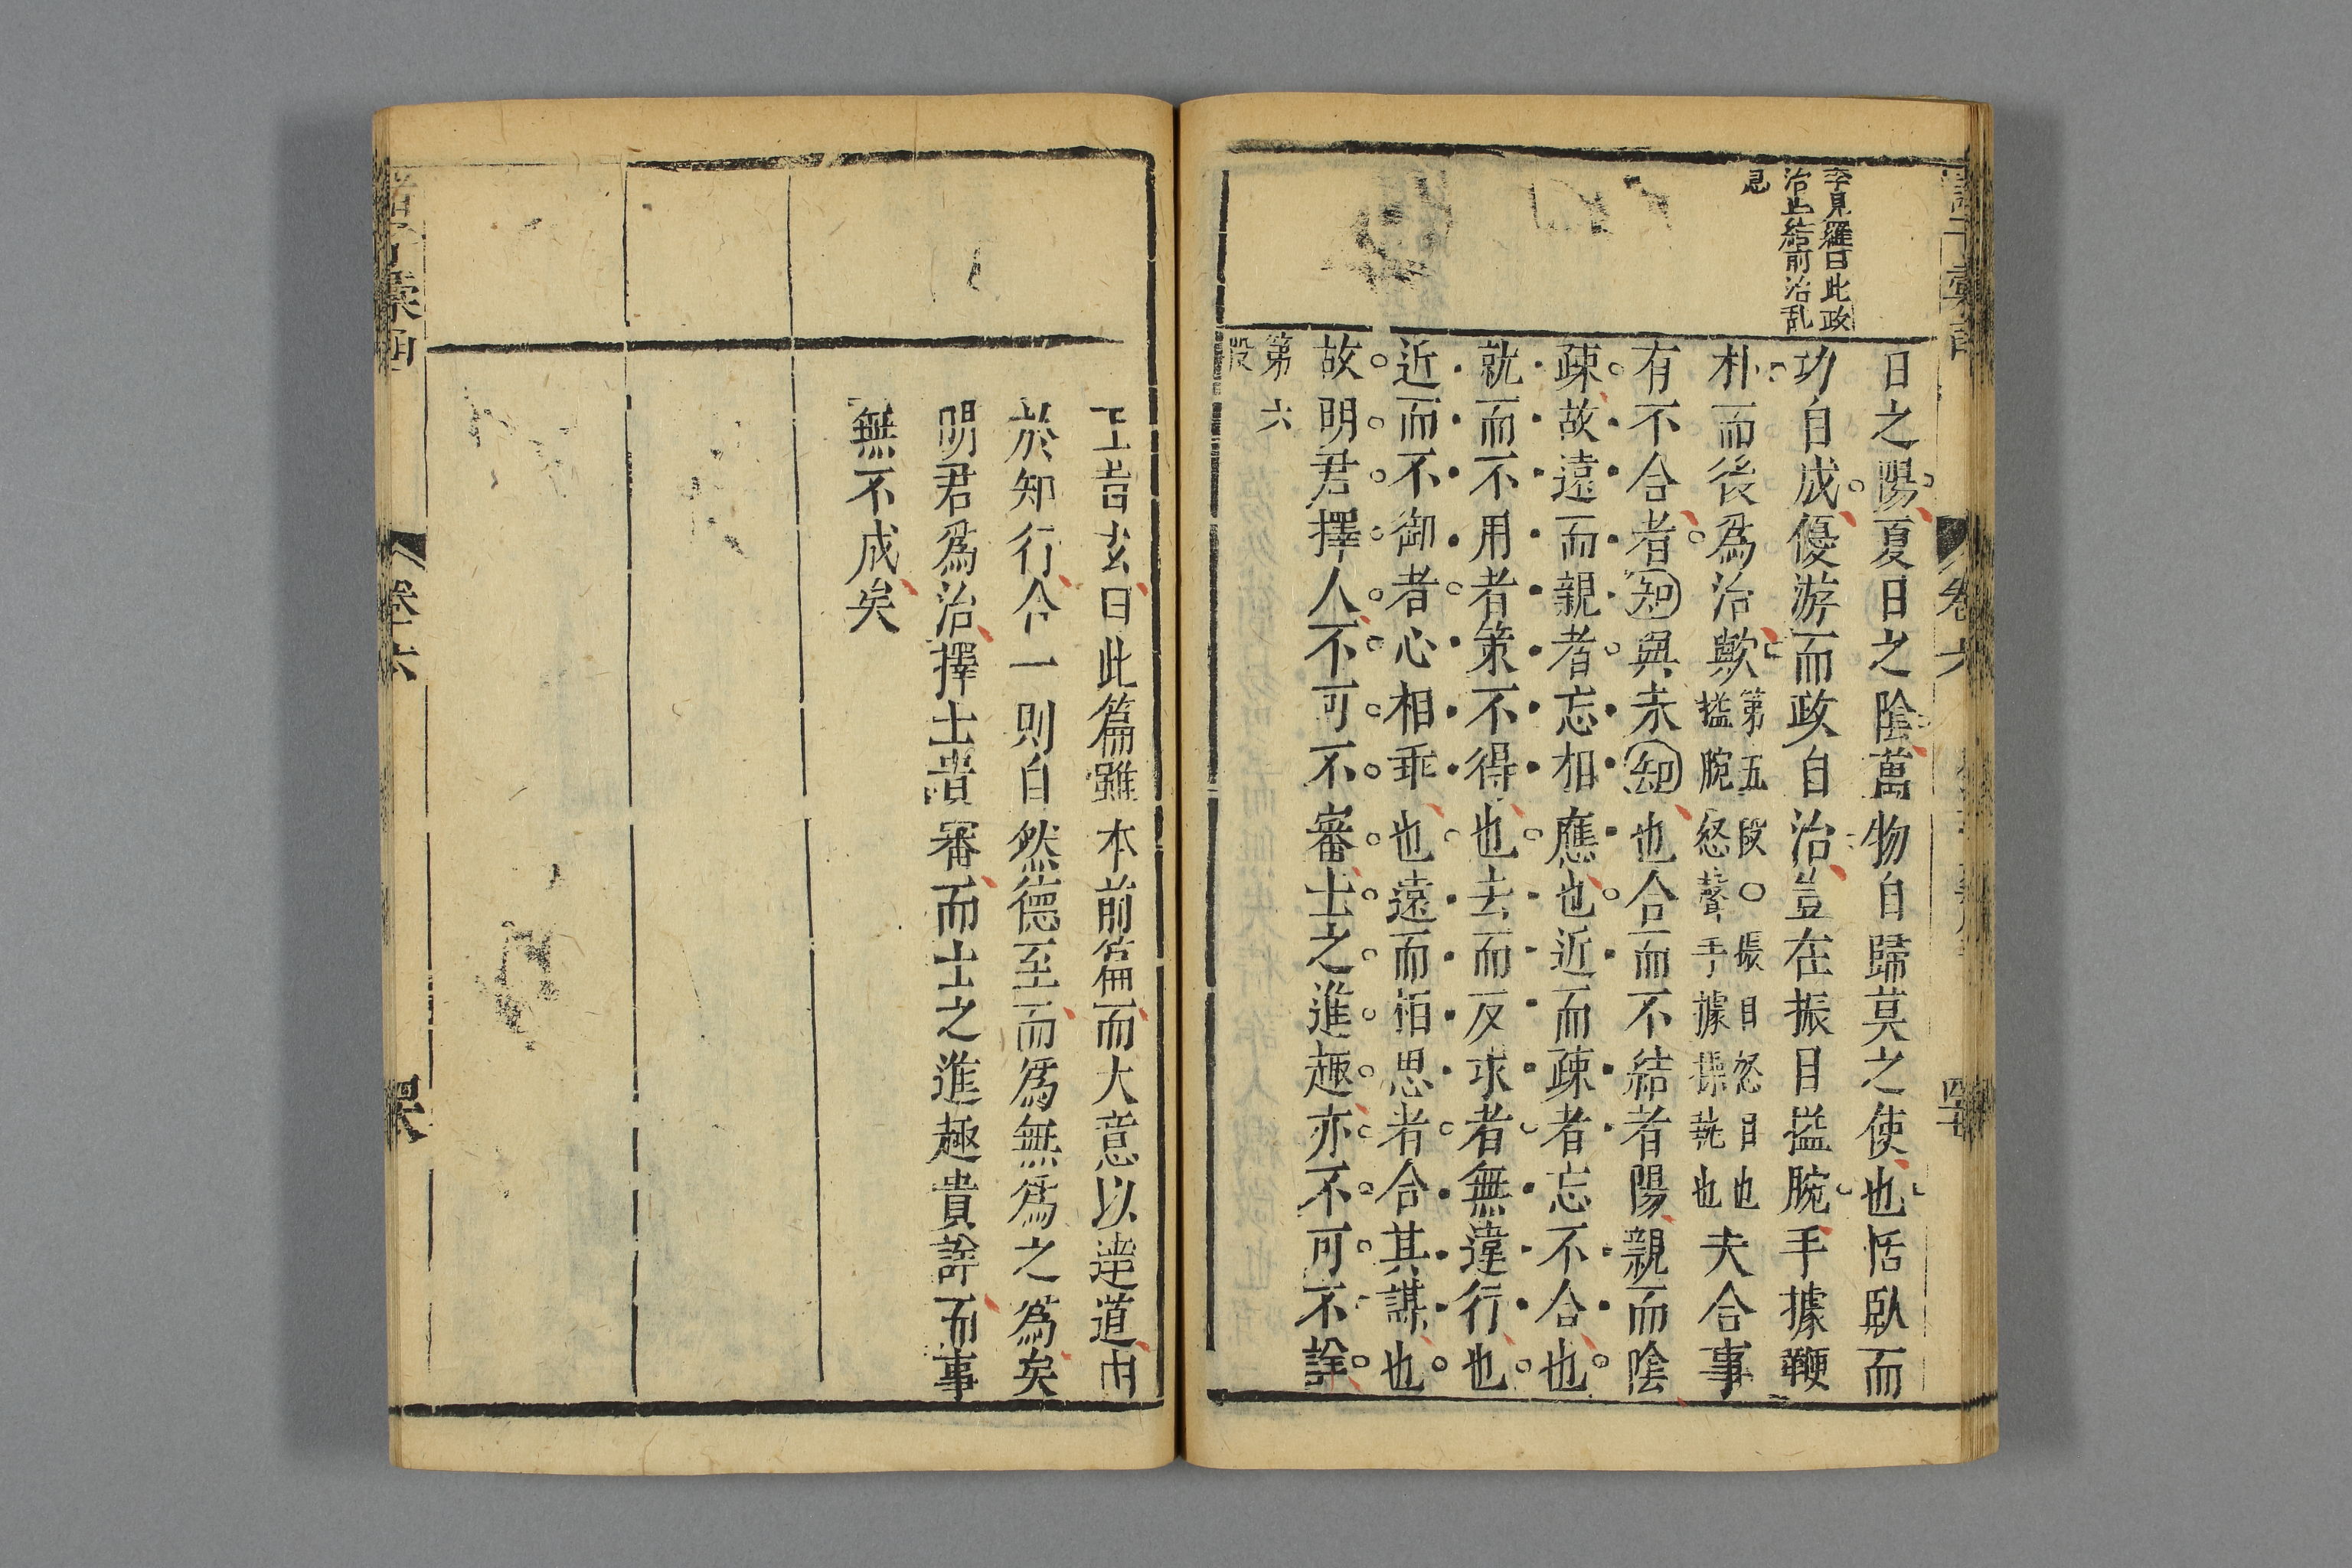 李見羅曰此政
治止結前治乱
意
日之陽夏日之陰萬物自歸莫之使也恬臥而
功自成優游而政自治豈在振目搤腕手據鞭
朴而後爲治歟
第五段○振目怒目也
搤腕怒聲手據操執也
夫合事
有不合者知與未知也合而不結者陽親而陰
疎故遠而親者志相應也近而疎者志不合也
就而不用者策不得也去而反求者無違行也
近而不御者心相乖也遠而相思者合其謀也
故明君擇人不可不審士之進趣亦不可不詮
第六
段
曰此篇雖本前篇而大意以道
於知行合一則自然德至而爲無爲之爲矣
明君爲治擇士貴審而士之進趣貴詮而事
無不成矣
卷六